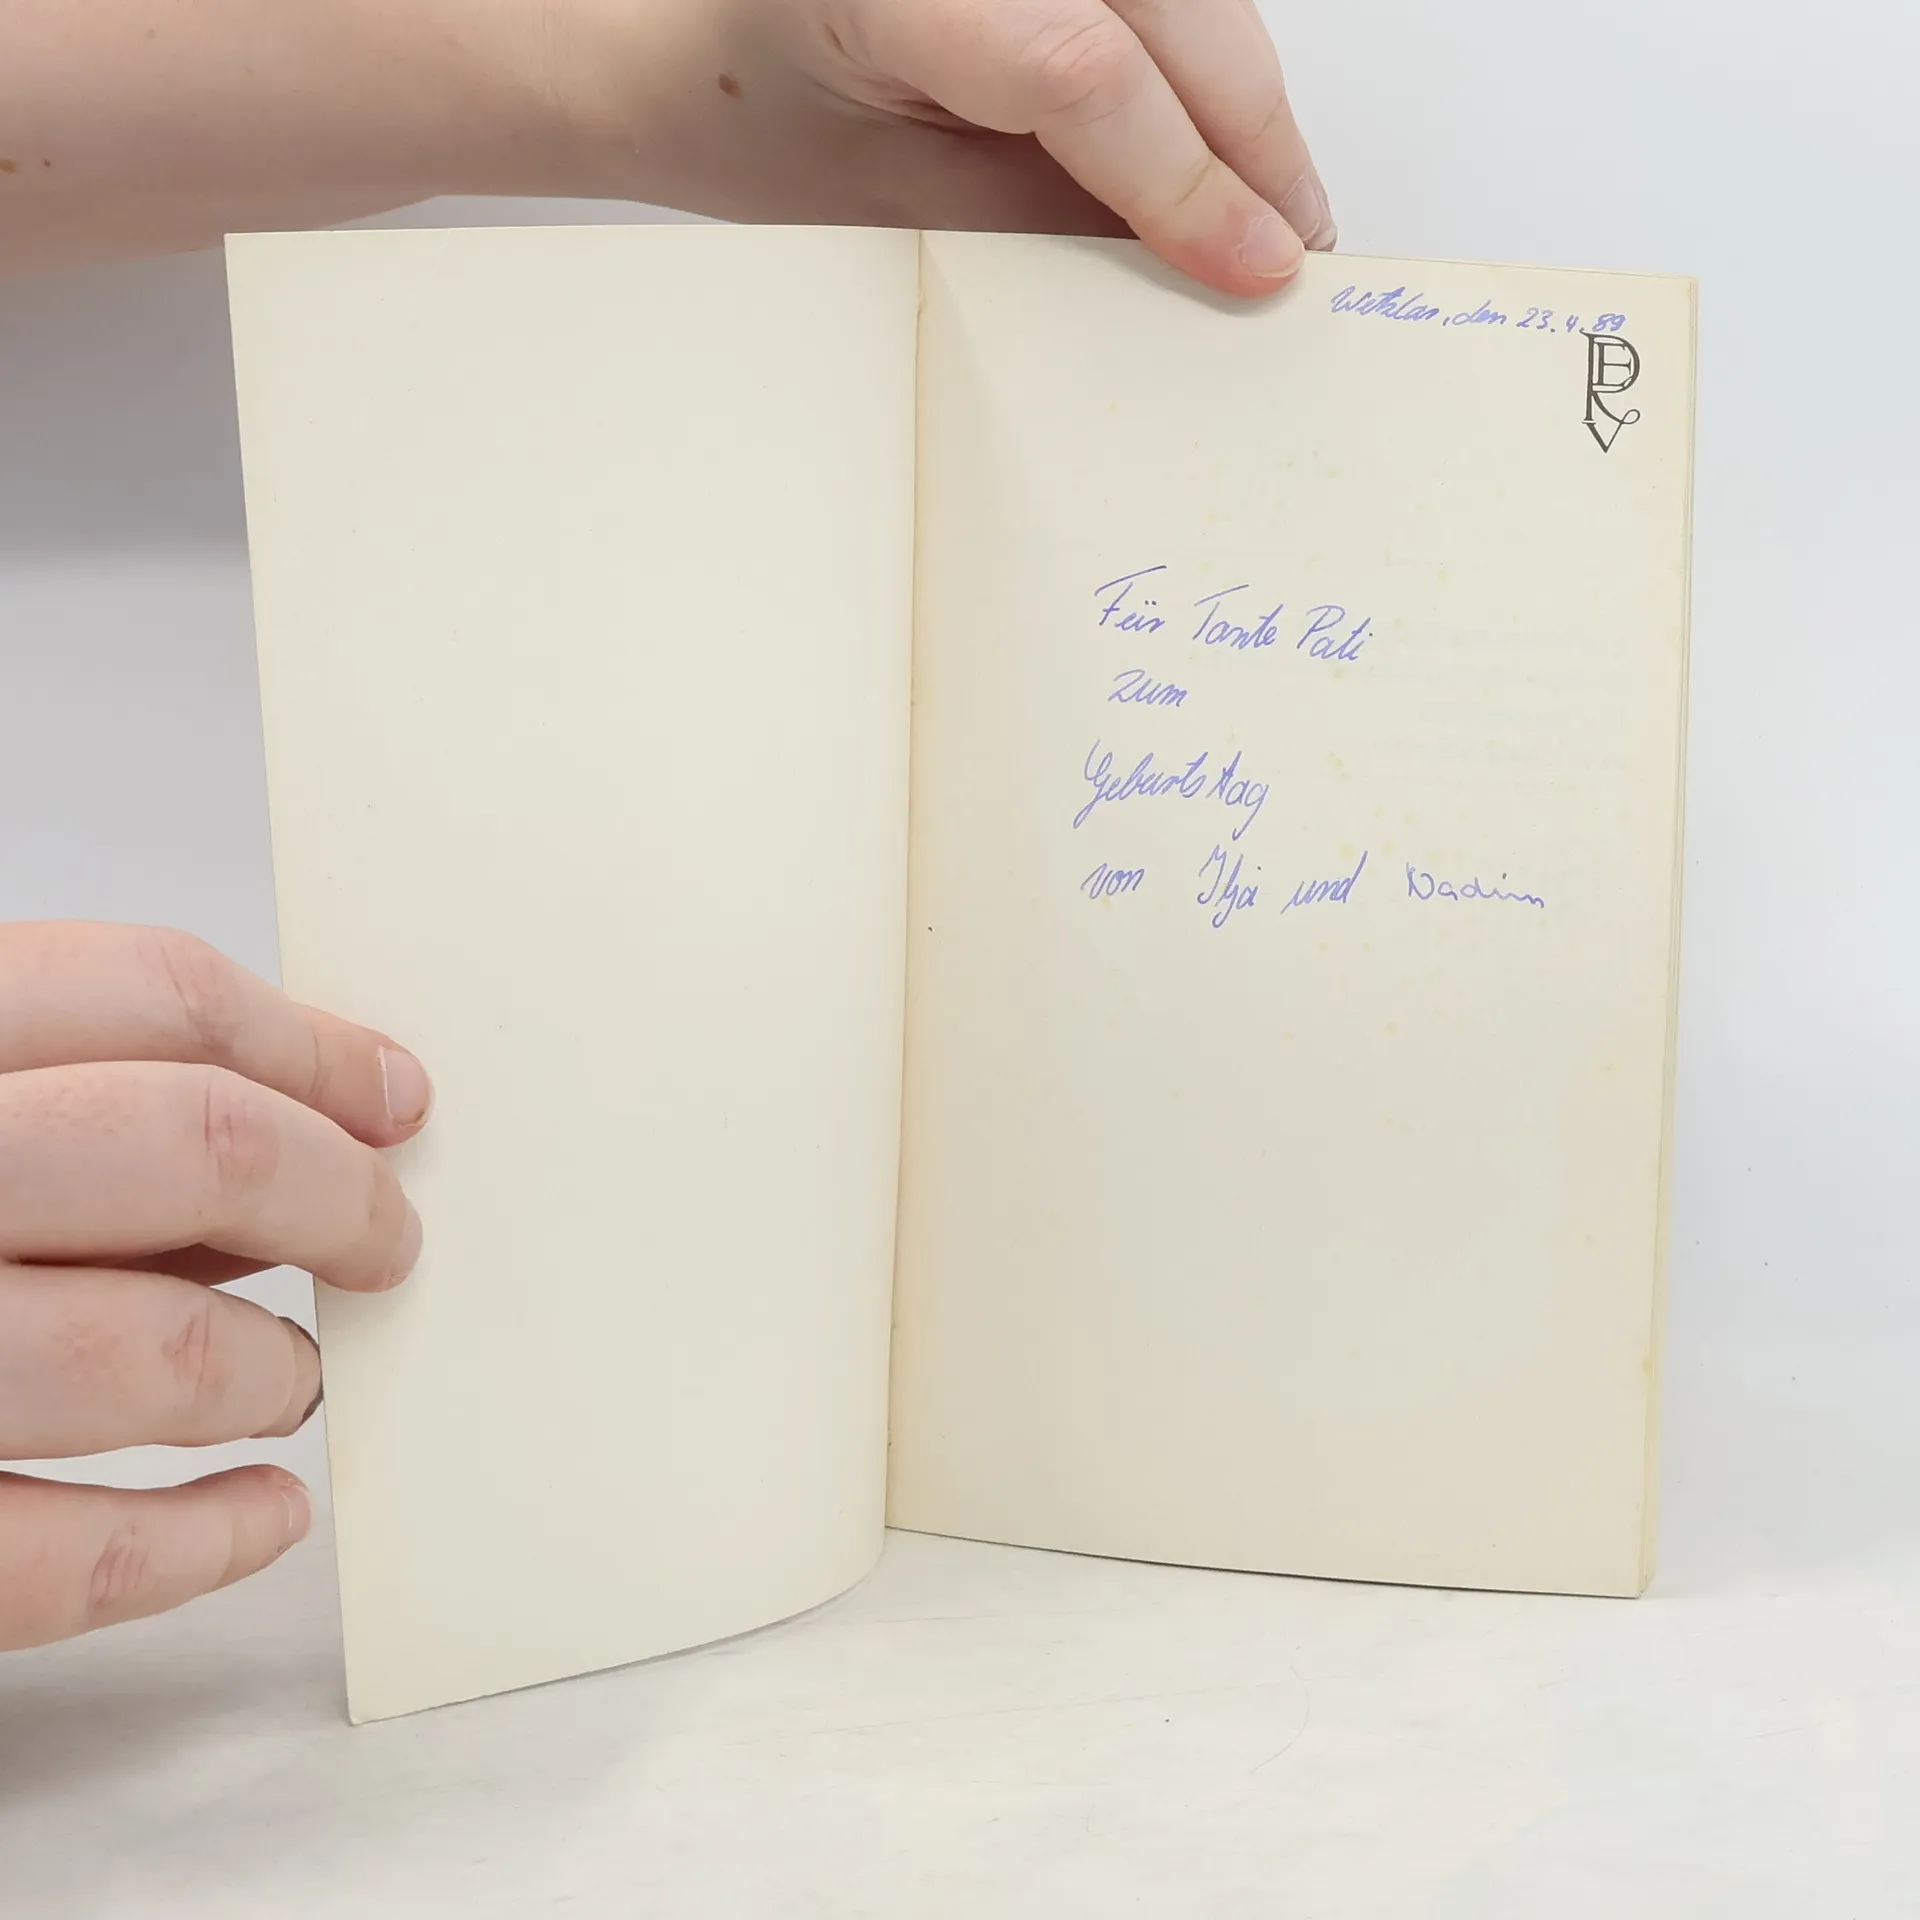 Wetzlar, den 23.4.89
ERV
Für Tante Pati
zum
Geburtstag
von Ilja und Nadim